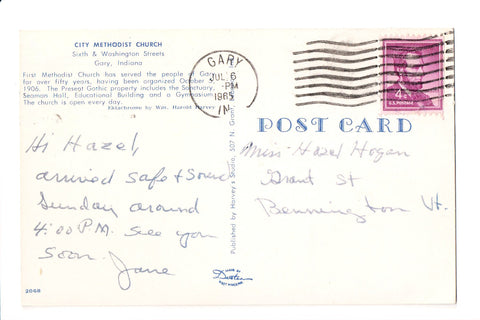 CITY METHODIST CHURCH
Sixth & Washington Streets
Gary, Indiana
First Methodist Church has served the people of Gary
for over fifty years, having been organized October
1906. The Present Gothic property includes the Sanctuary,
Seaman Hall, Educational Building and a Gymnasium.
The church is open every day.
Ektachrome by Wm. Harold Harvey
GARY
JUL 6
PM
1965
IN
4¢
U.S. POSTAGE
POST CARD
Hi Hazel,
arrived safe & Sound
Sunday around
4:00 P.M. see you
soon.
Jane
Published by Harvey's Studio, 507 N. Grant
Miss Hazel Hogan
Grant St
Bennington Vt.
MADE BY
Dexter
WEST NYACK, NY